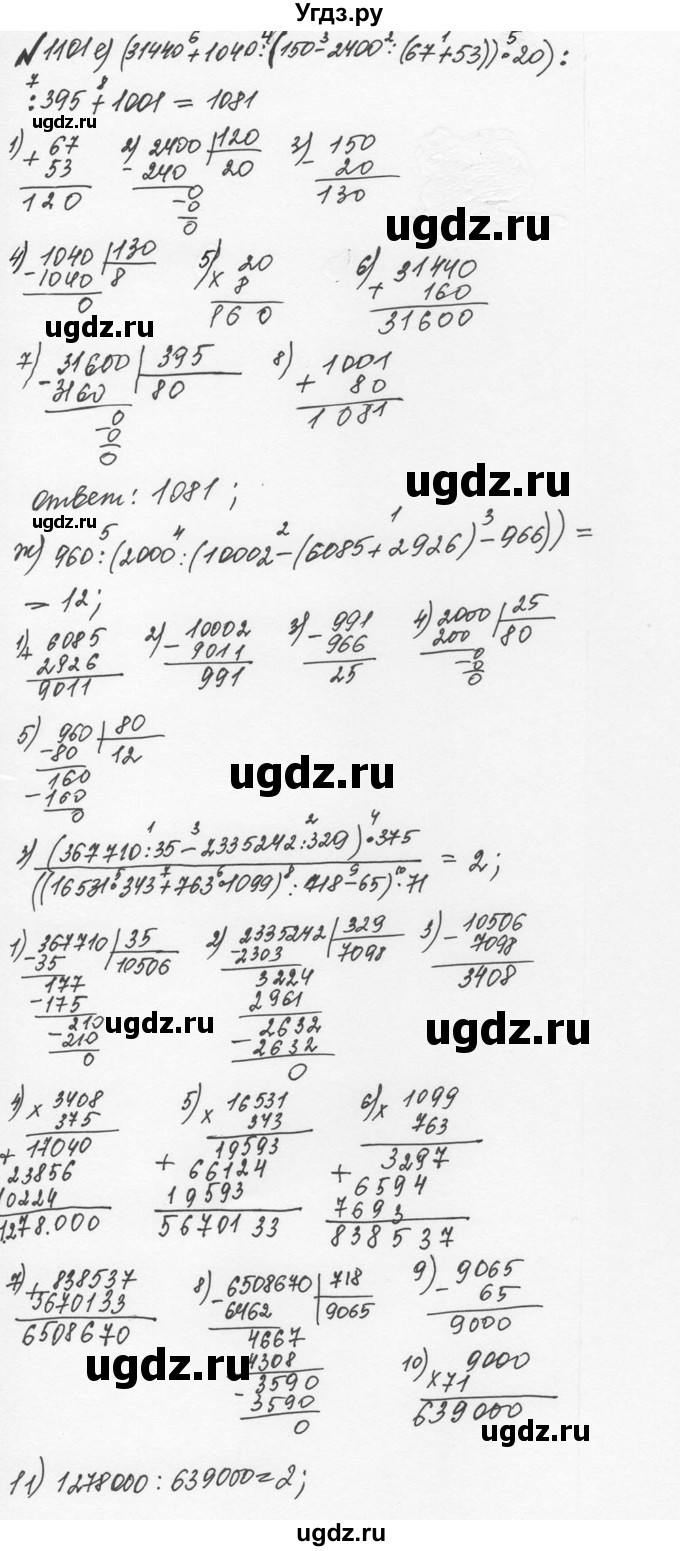 Угдз.ру
№1101 е) (31440 + 1040 : (150 - 2400 : (67 + 53)) • 20) :
6 4 3 2 1 5
: 395 + 1001 = 1081
7 8
ugdz.ru
1) + 67
53
120
2) - 2400 | 120
240 20
- 0
0
0
3) - 150
20
130
ugdz.ru
4) - 1040 | 130
1040 8
0
5) x 20
8
160
6) + 31440
160
31600
ugdz.ru
7) - 31600 | 395
3160 80
- 0
0
0
8) + 1001
80
1081
ugdz.ru
ответ: 1081;
ugdz.ru
ж) 960 : (2000 : (10002 - (6085 + 2926) - 966)) =
5 4 2 1 3
= 12;
1) + 6085
2926
9011
2) - 10002
9011
991
3) - 991
966
25
4) 2000 | 25
200 80
- 0
0
0
5) - 960 | 80
80 12
160
- 160
0
ugdz.ru
з) (367710 : 35 - 2335242 : 329) • 375
1 3 2 4
((16531 • 343 + 763 • 1099) : 718 - 65) • 71
5 7 6 8 9 10
= 2;
1) - 367710 | 35
35 10506
177
- 175
210
- 210
0
ugdz.ru
2) - 2335242 | 329
2303 7098
3224
2961
2632
- 2632
0
3) - 10506
7098
3408
ugdz.ru
4) x 3408
375
+ 17040
23856
10224
1278.000
5) x 16531
343
+ 19593
66124
19593
5670133
6) x 1099
763
+ 3297
6594
7693
838537
7) + 838537
5670133
6508670
8) - 6508670 | 718
6462 9065
4667
4308
- 3590
3590
0
9) - 9065
65
9000
10) 9000
x 71
639000
ugdz.ru
ugdz.ru
11) 1278000 : 639000 = 2;
ugdz.ru